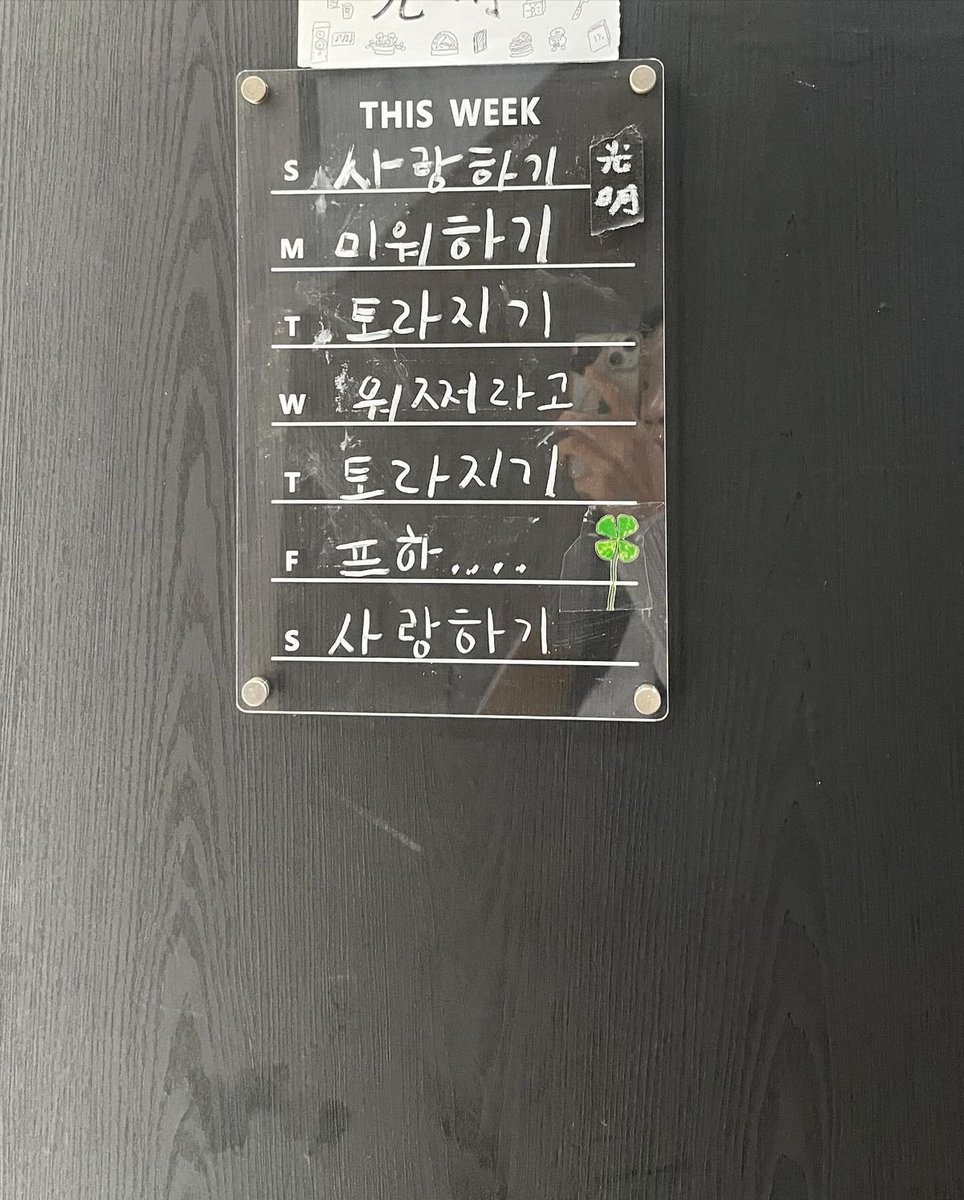 THIS WEEK
S 사랑하기
光明
M 미워하기
T 토라지기
W 워쩌라고
T 토라지기
F 프하....
S 사랑하기